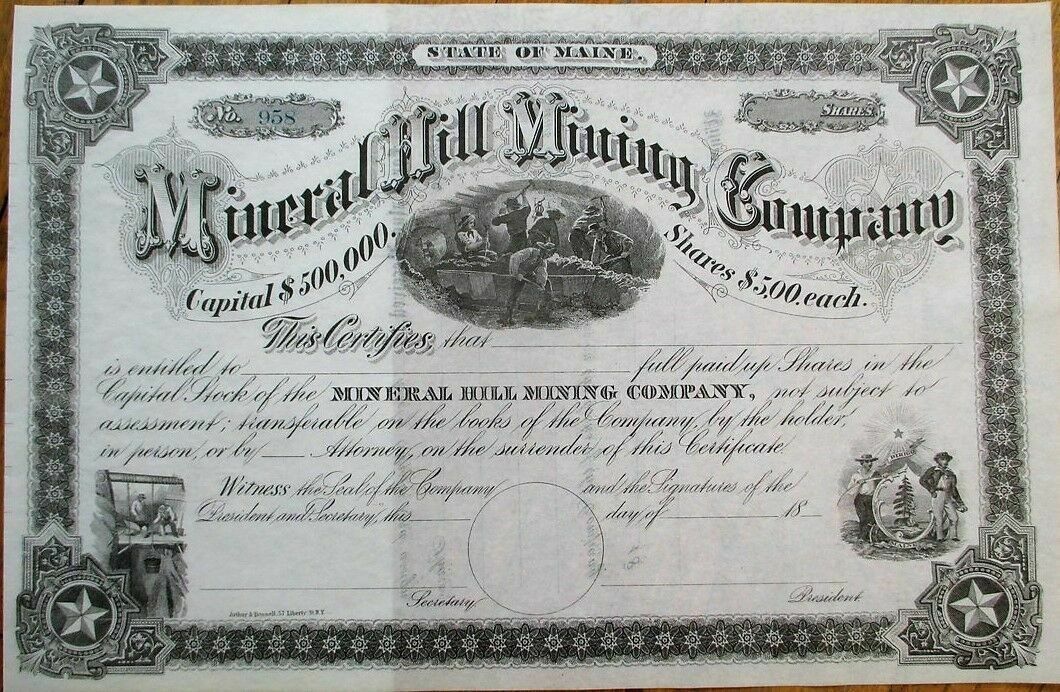 STATE OF MAINE.
No. 958
SHARES.
Mineral Hill Mining Company
Capital $500,000.
Shares $5,00. each.
This Certifies, that
is entitled to full paid up Shares in the
Capital Stock of the MINERAL HILL MINING COMPANY, not subject to
assessment; transferable on the books of the Company, by the holder,
in person, or by Attorney, on the surrender of this Certificate.
Witness the Seal of the Company and the Signatures of the
President and Secretary, this day of 18
Secretary.
President.
Arthur & Bonnell, 57 Liberty St. N.Y.